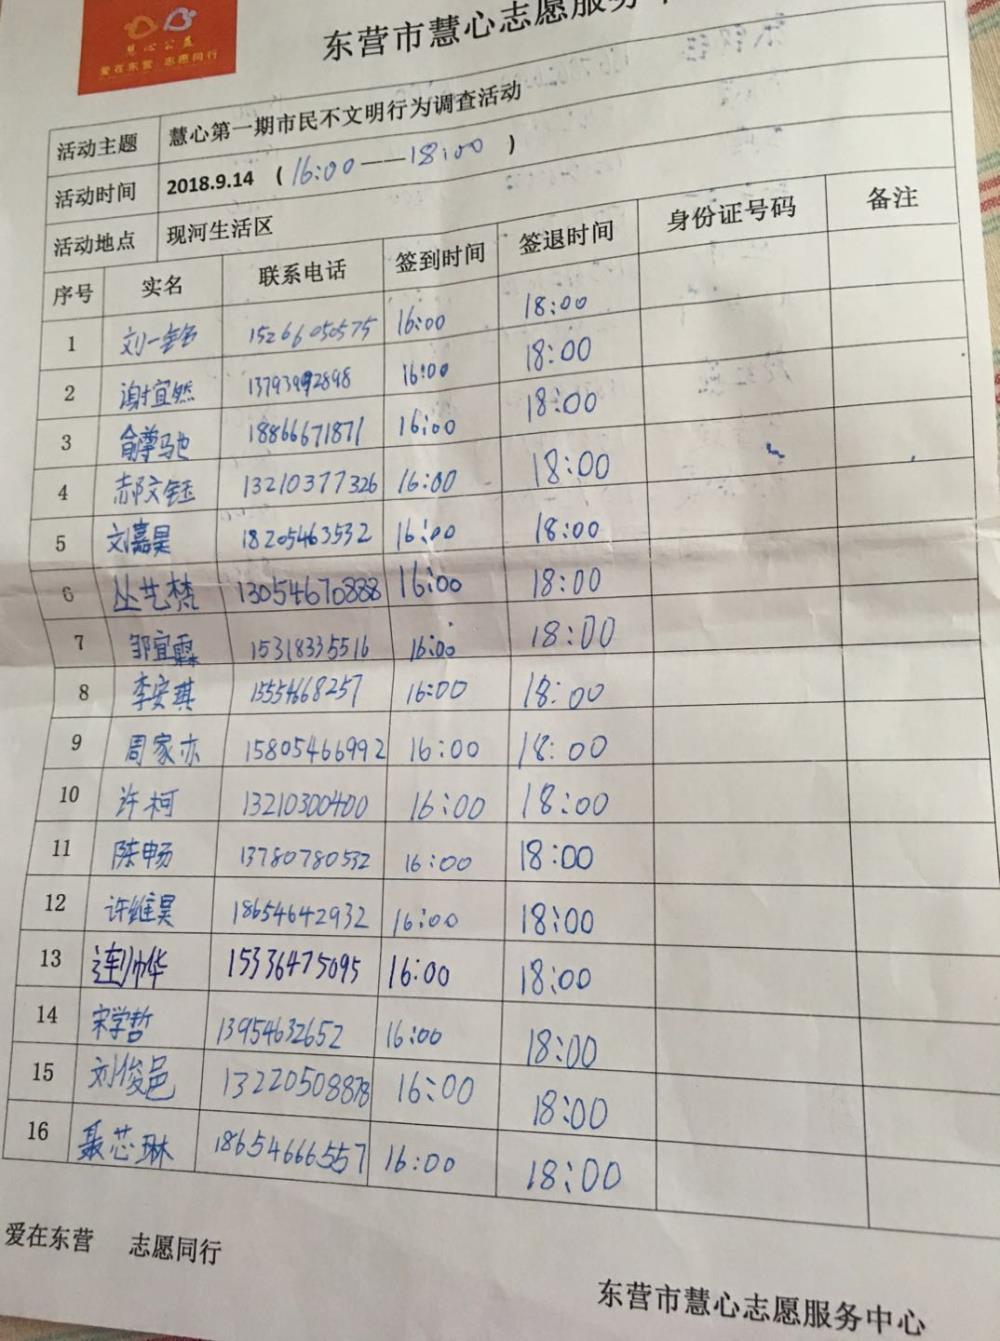 慧心公益
爱在东营 志愿同行
东营市慧心志愿服务中
活动主题 慧心第一期市民不文明行为调查活动
活动时间 2018.9.14 (16:00——18:00)
活动地点 现河生活区
序号 实名 联系电话 签到时间 签退时间 身份证号码 备注
1 刘一铭 15266050575 16:00 18:00
2 谢宜然 13793992898 16:00 18:00
3 俞尊驰 18866671871 16:00 18:00
4 郝文钰 13210377326 16:00 18:00
5 刘嘉昊 18205463532 16:00 18:00
6 丛艺梵 13054670888 16:00 18:00
7 邹宜霖 15318335516 16:00 18:00
8 李安琪 15554668257 16:00 18:00
9 周家亦 15805466992 16:00 18:00
10 许柯 13210300400 16:00 18:00
11 陈畅 13780780532 16:00 18:00
12 许维昊 18654642932 16:00 18:00
13 连帅华 15336475095 16:00 18:00
14 宋学哲 13954632652 16:00 18:00
15 刘俊邑 13220508878 16:00 18:00
16 聂芯琳 18654666557 16:00 18:00
爱在东营 志愿同行
东营市慧心志愿服务中心